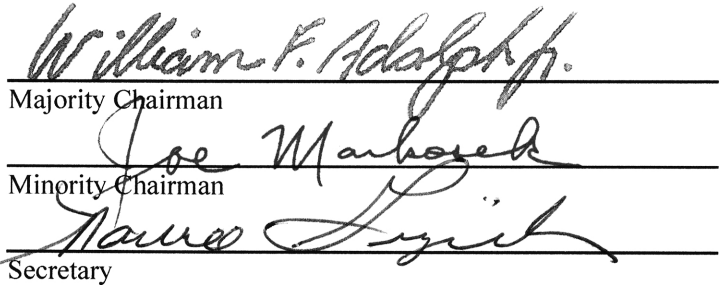 William F. Adolph, Jr.
Majority Chairman
Joe Markosek
Minority Chairman
Secretary